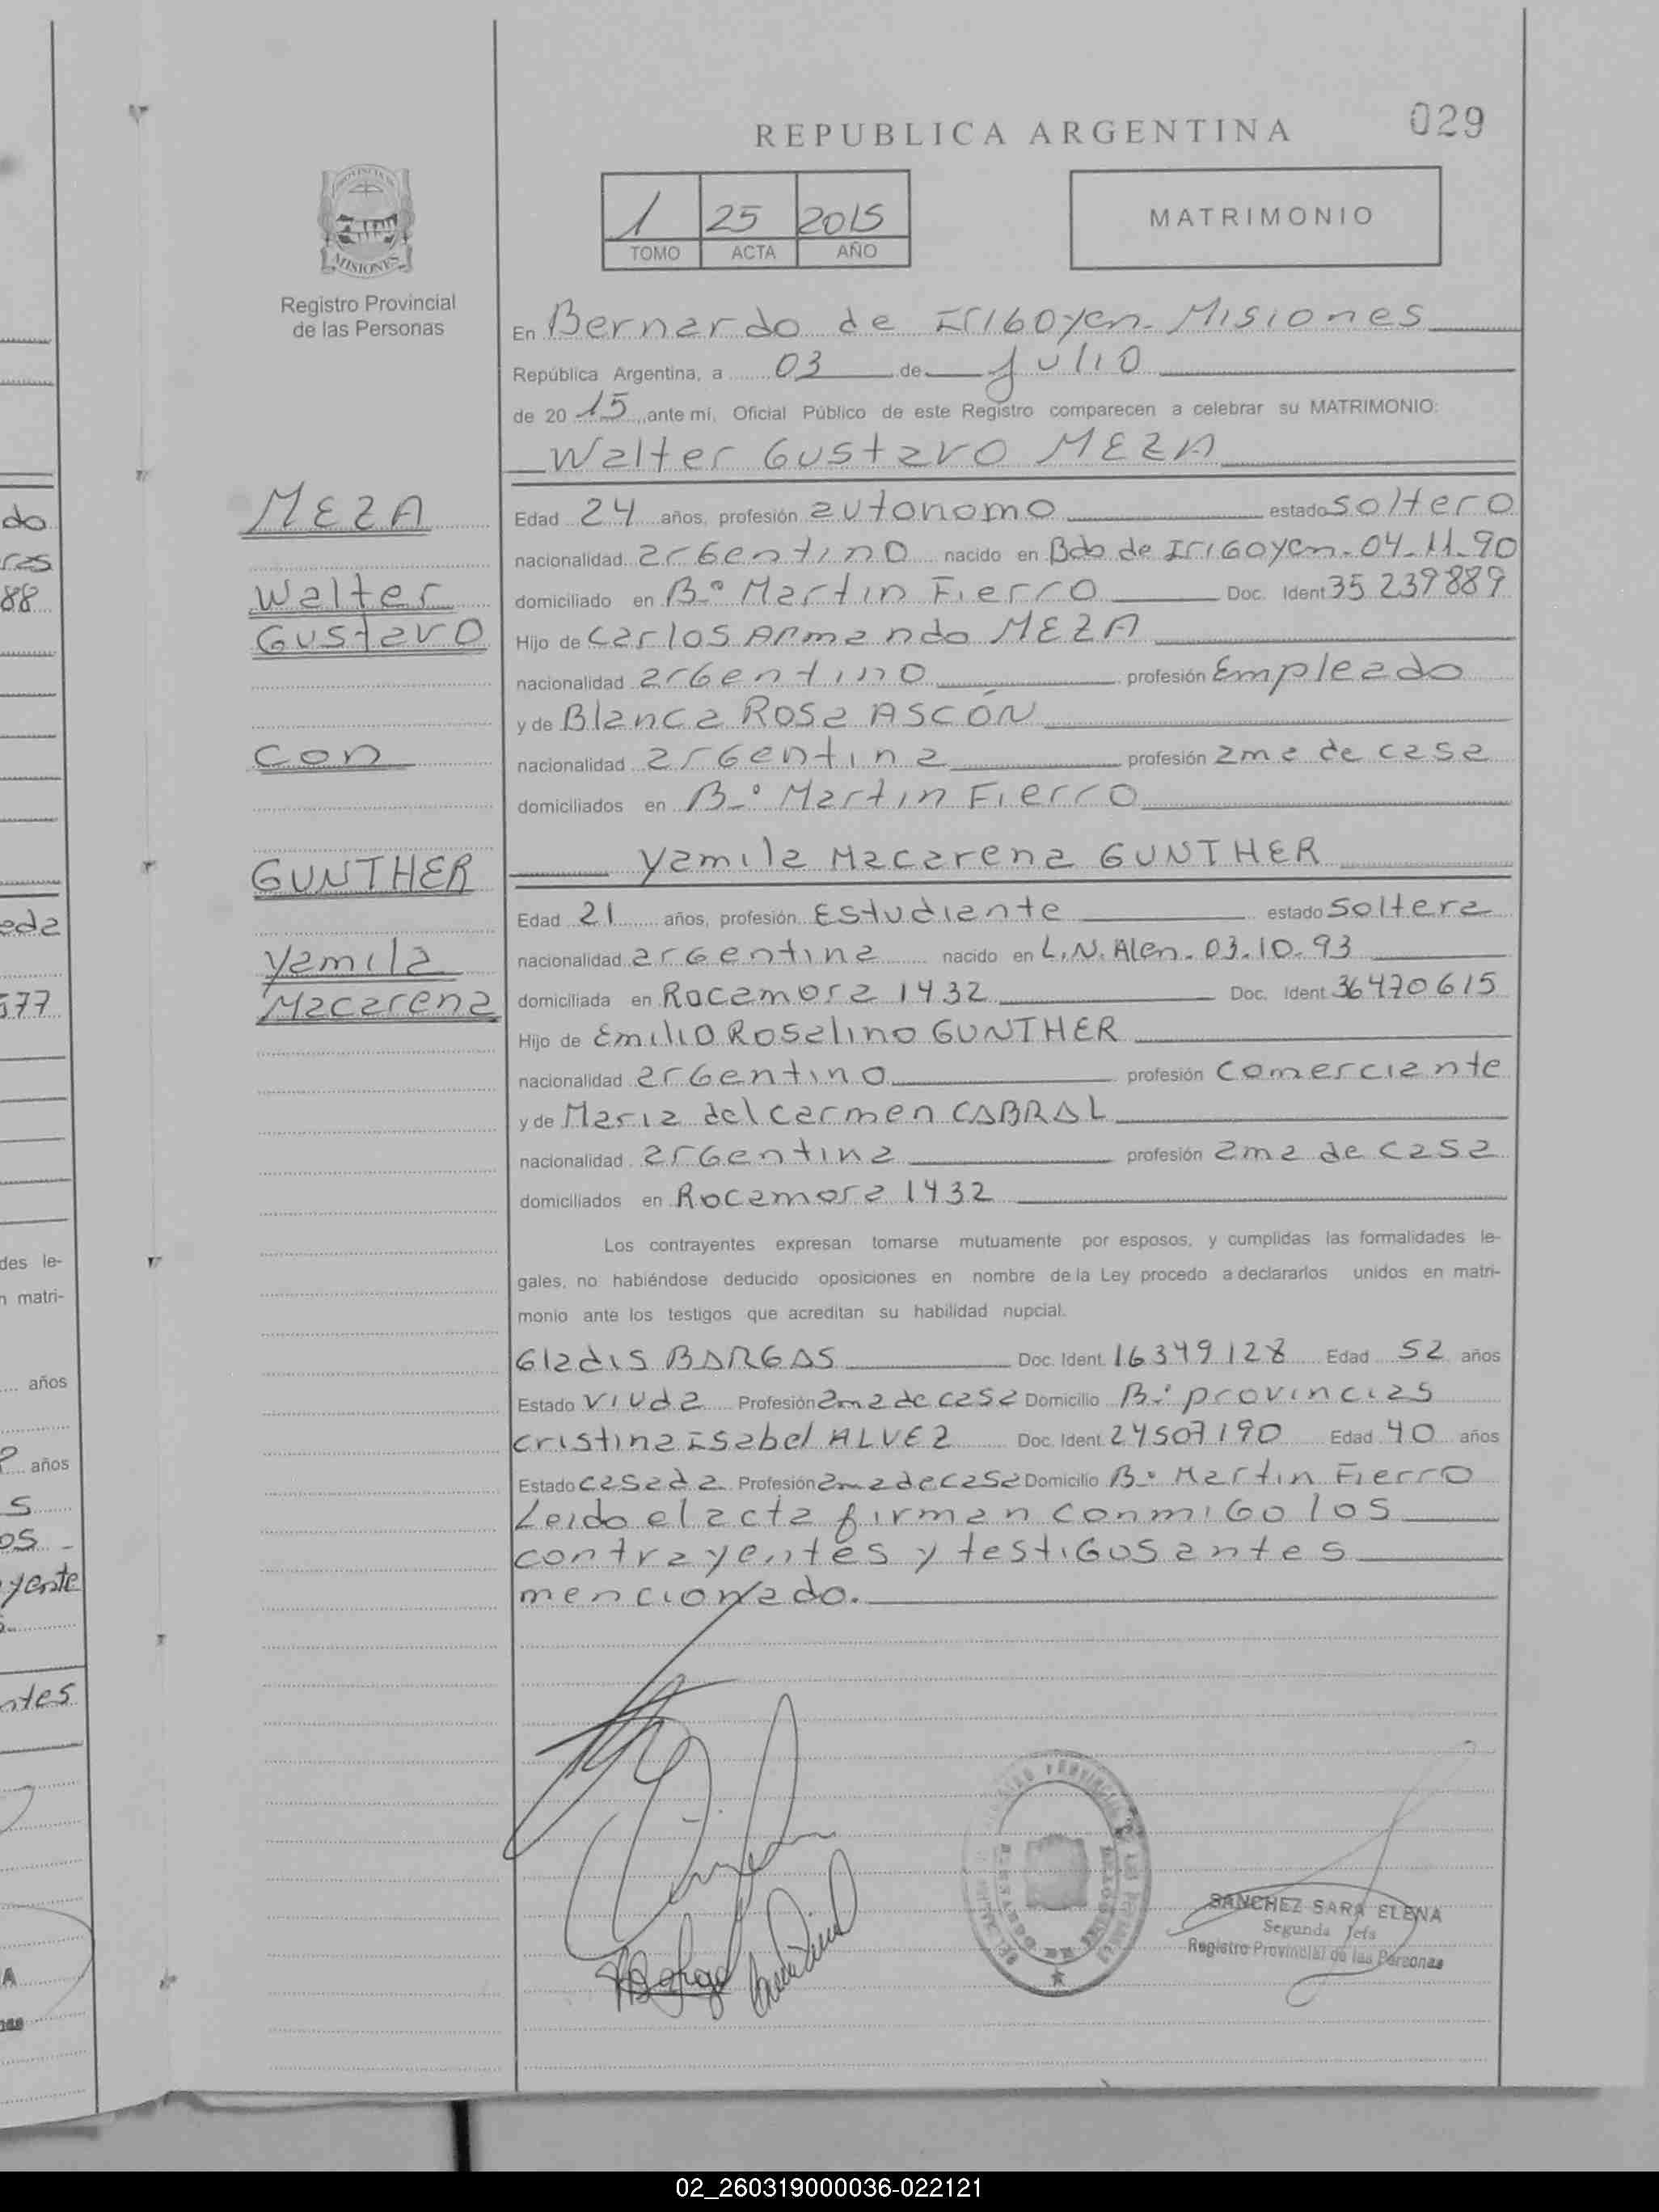 REPUBLICA ARGENTINA
029
1 25 2015
TOMO ACTA AÑO
MATRIMONIO
PROVINCIA DE
MISIONES
Registro Provincial
de las Personas
En Bernardo de IriGoyen- Misiones
República Argentina, a 03 de julio
de 20 15, ante mí, Oficial Público de este Registro comparecen a celebrar su MATRIMONIO:
Walter Gustavo MEZA
MEZA
Walter
Gustavo
con
GUNTHER
Yamila
Macarena
Edad 24 años, profesión autonomo estado soltero
nacionalidad arGentino nacido en Bdo de IriGoyen-04-11-90
domiciliado en B-º Martin Fierro Doc. Ident 35 239889
Hijo de Carlos Armando MEZA
nacionalidad arGentino profesión Empleado
y de Blanca Rosa ASCÓN
nacionalidad arGentina profesión ama de casa
domiciliados en B-º Martin Fierro
Yamila Macarena GUNTHER
Edad 21 años, profesión Estudiante estado soltera
nacionalidad arGentina nacido en L.N.Alen-03.10-93
domiciliada en Rocamora 1432 Doc. Ident. 36470615
Hijo de Emilio Roselino GUNTHER
nacionalidad arGentino profesión comerciante
y de Maria del carmen CABRAL
nacionalidad arGentina profesión ama de casa
domiciliados en Rocamora 1432
Los contrayentes expresan tomarse mutuamente por esposos, y cumplidas las formalidades le-
gales, no habiéndose deducido oposiciones en nombre de la Ley procedo a declararlos unidos en matri-
monio ante los testigos que acreditan su habilidad nupcial.
Gladis BARGAS Doc. Ident. 16349128 Edad 52 años
Estado viuda Profesión ama de casa Domicilio B-º provincias
cristina isabel ALVEZ Doc. Ident. 24507190 Edad 40 años
Estado casada Profesión ama de casa Domicilio B-º Martin Fierro
Leido el acta firman conmiGo los
contrayentes y testiGos antes
mencionado.
SANCHEZ SARA ELENA
Segunda Jefa
Registro Provincial de las Personas
do
ras
88
eda
577
des le-
n matri-
años
años
s
os
yente
ntes
A
02_260319000036-022121